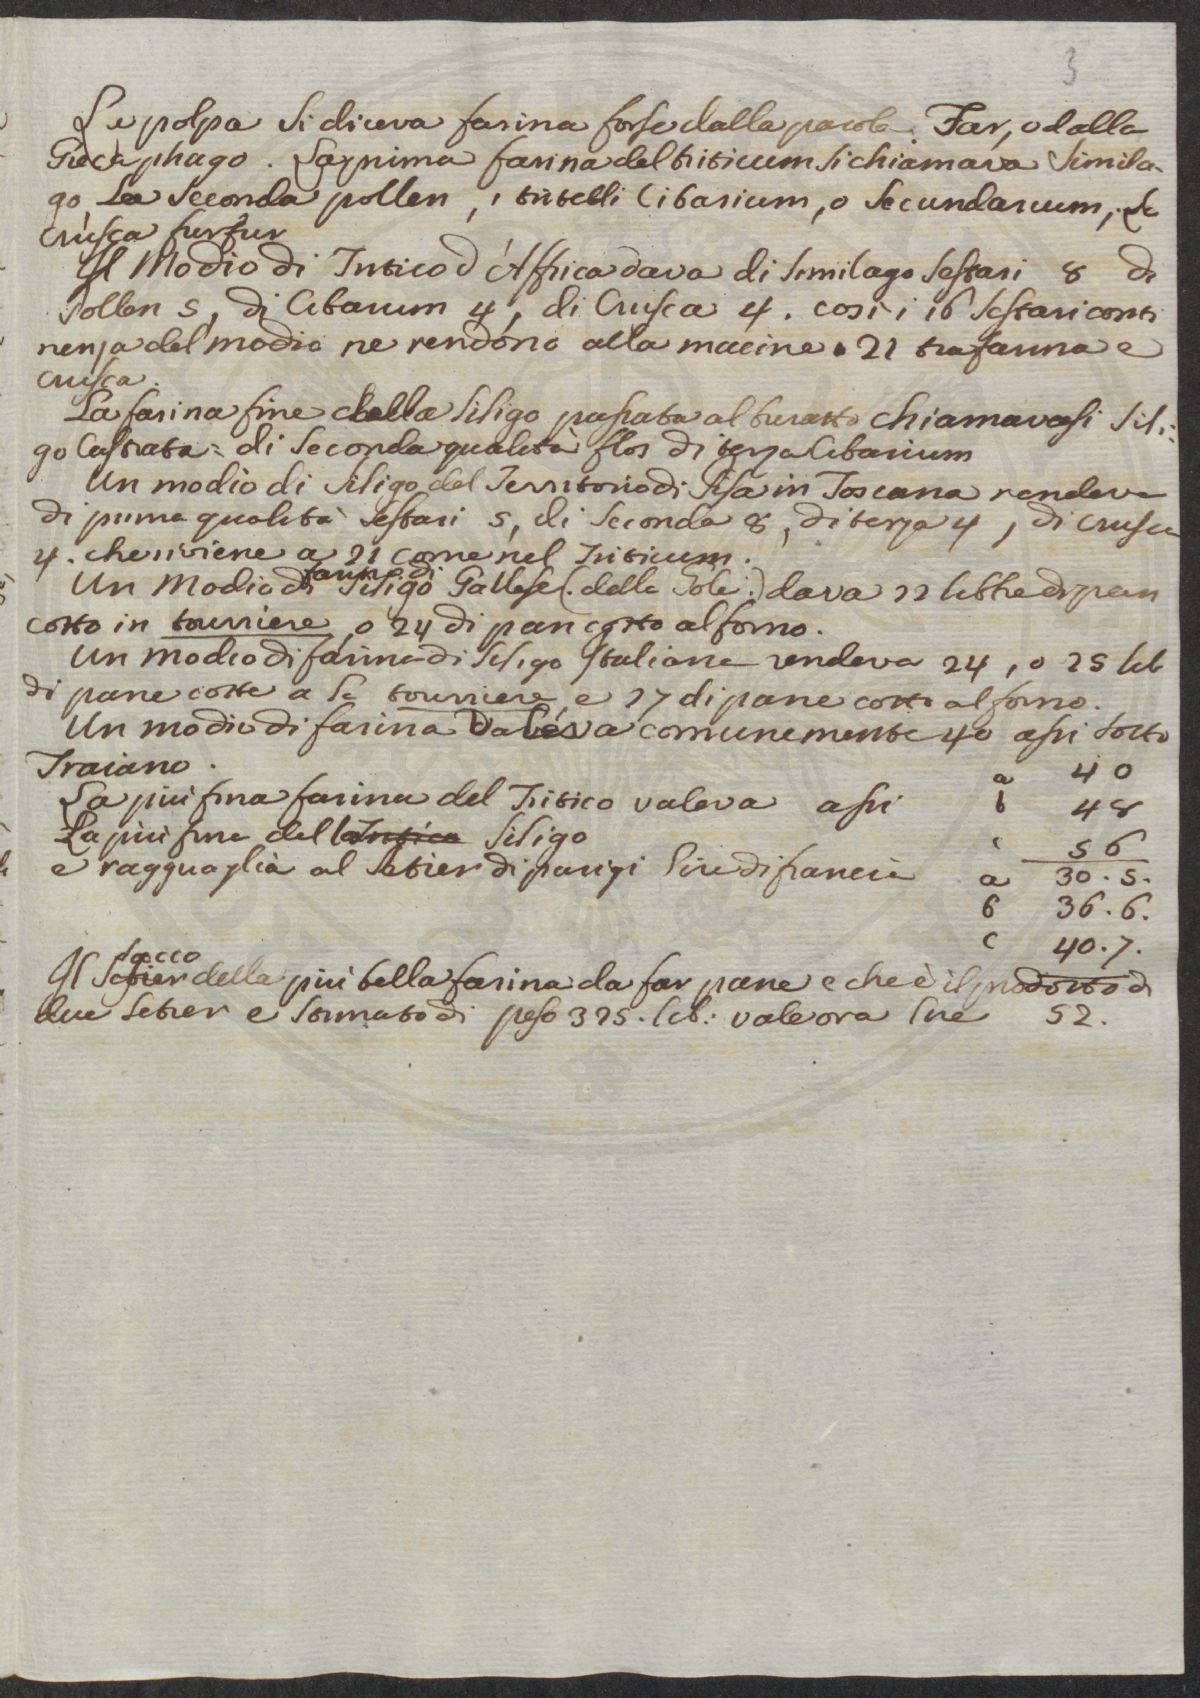 3
La polpa si diceva farina forse dalla parola Far, o dalla
Greca phago. La prima farina del triticum si chiamava Simila-
go La Seconda pollen, i tritelli Cibarium, o Secundarium, La
crusca furfur
Il Modio di Tritico d'Affrica dava di Similago Sestari 8 di
Pollen 5, di Cibarium 4, di Crusca 4. così i 16 Sestari conti
nenza del modio ne rendono alla macine 21 tra farina e
crusca.
La farina fine della Siligo passata al buratto chiamavasi Sili:
go Castrata: di Seconda qualità flos di terza Cibarium
Un modio di Siligo del Territorio di Pisa in Toscana rendeva
di prima qualità Sestari 5, di Seconda 8, di terza 4, di crusca
4. che riviene a 21 come nel Triticum.
farina di
Un Modio di Siligo Gallese (: delle :) dava 22 libbre di pan
cotto in tourriere, o 24 di pan cotto al forno.
Un modio di farina di Siligo Italiana rendeva 24, o 25 lib
di pane cotte a la tourriere, e 27 di pane cotto al forno.
Un modio di farina Valeva comunemente 40 assi sotto
Traiano. a 40
La più fina farina del Tritico valeva assi b 48
La più fine dell Tritico Siligo c 56
e ragguaglia al Setier di parigi lire di francia a 30.5.
b 36.6.
c 40.7.
sacco
Il Setier della più bella farina da far pane e che è il prodotto di
due Setier e stimato di peso 325. lib: vale ora lire 52.